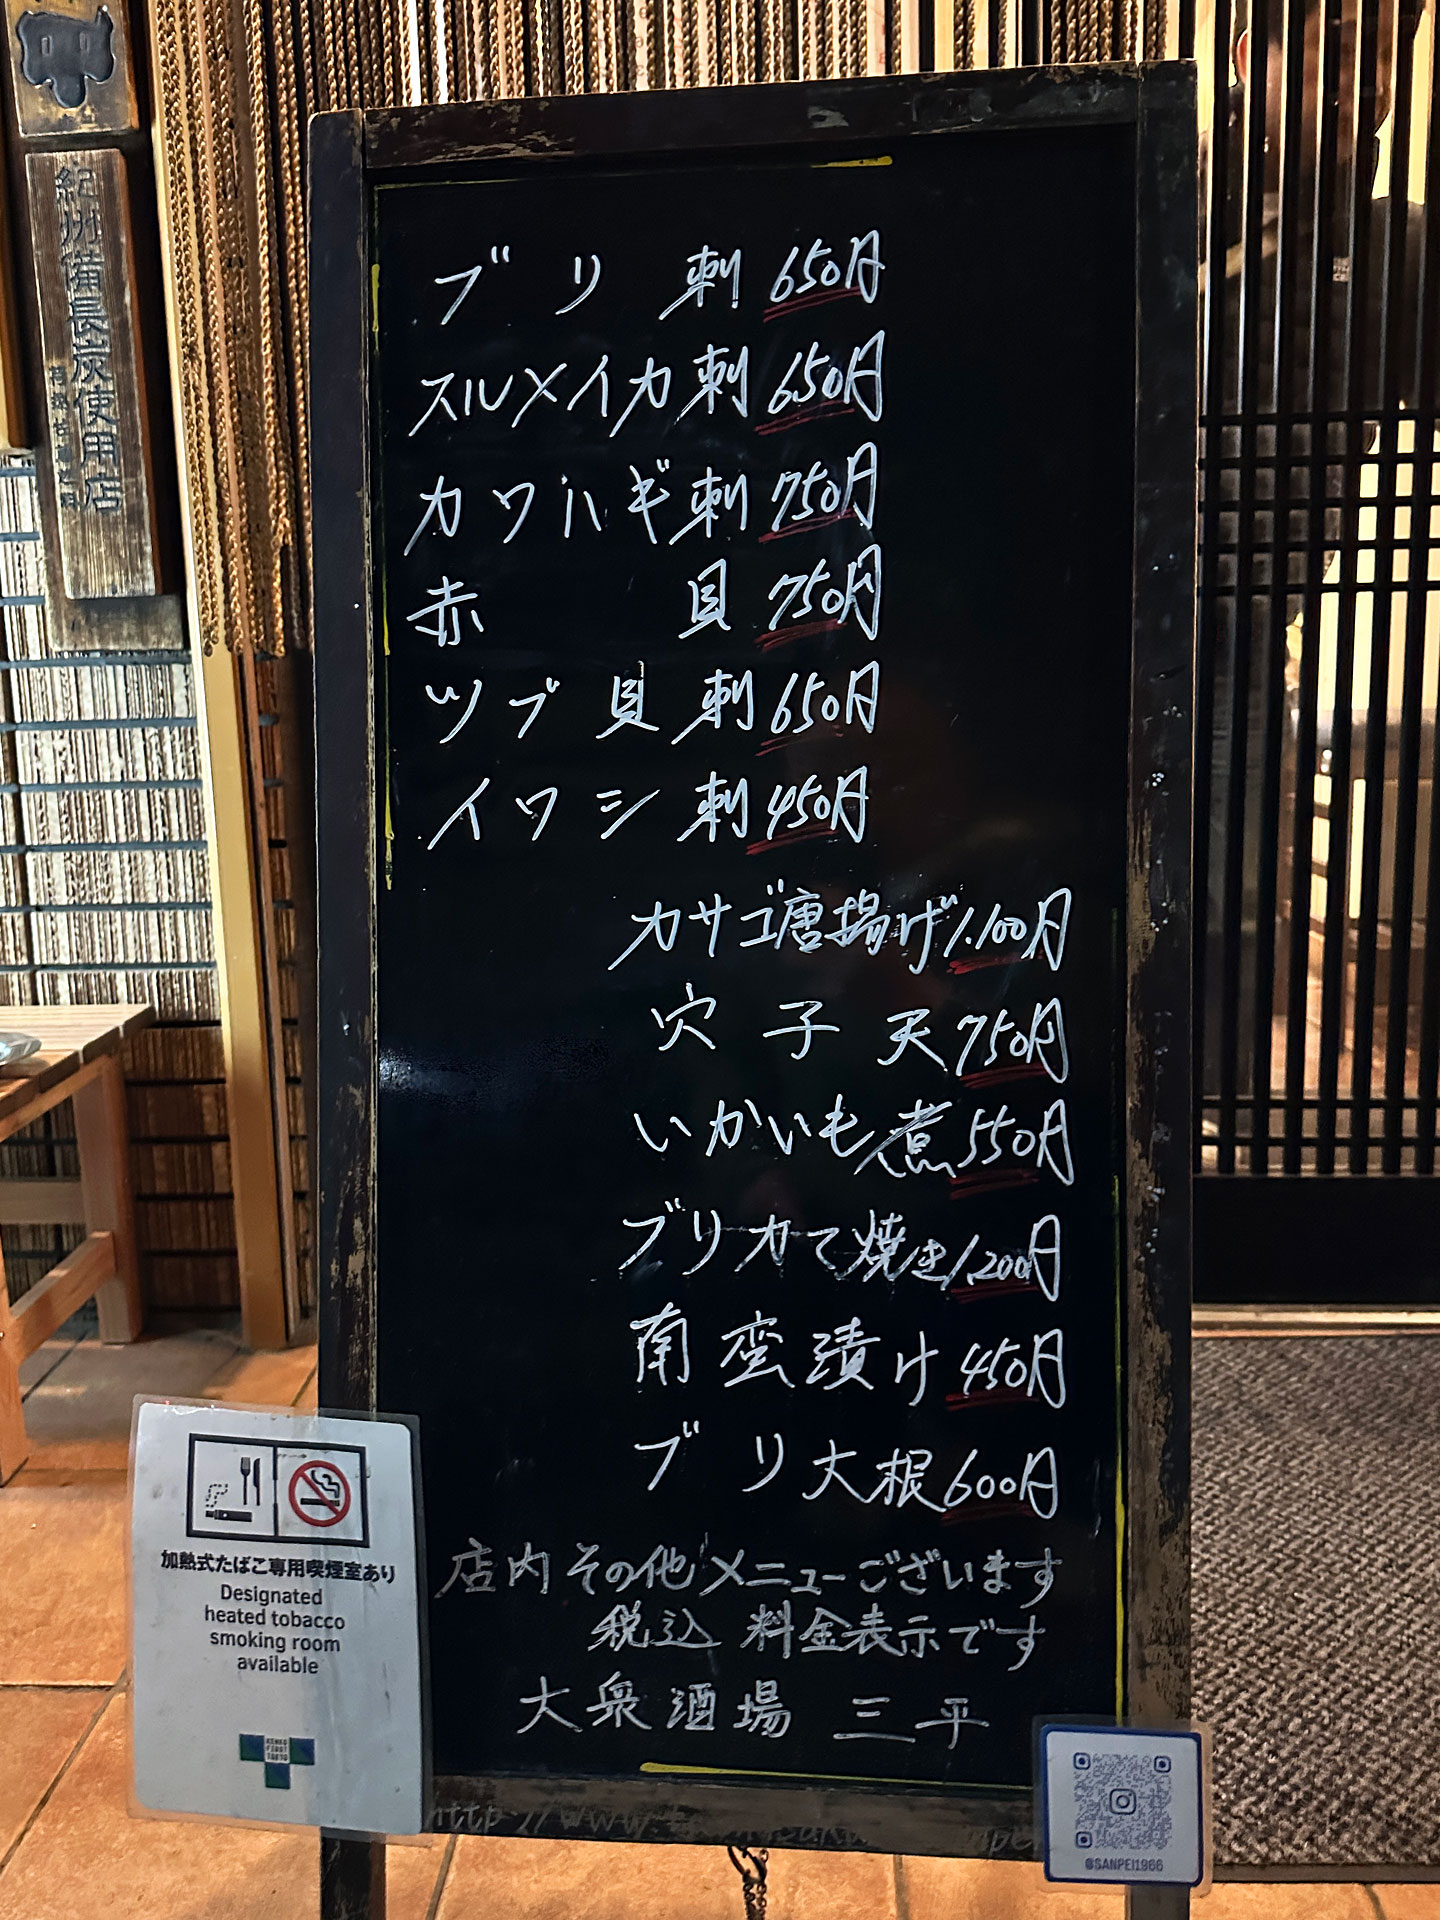 紀州備長炭使用店
ブリ刺 650円
スルメイカ刺 650円
カワハギ刺 750円
赤貝 750円
ツブ貝刺 650円
イワシ刺 450円
カサゴ唐揚げ 1.100円
穴子天 750円
いかいも煮 550円
ブリカマ焼き 1.200円
南蛮漬け 450円
ブリ大根 600円
店内その他メニューございます
税込 料金表示です
大衆酒場 三平
加熱式たばこ専用喫煙室あり
Designated
heated tobacco
smoking room
available
@SANPEI1966